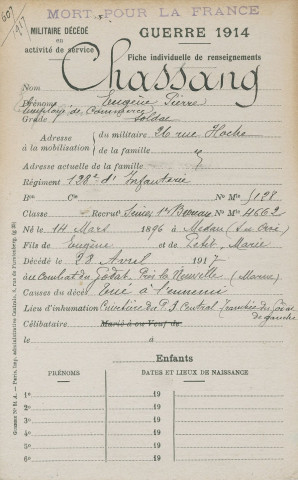 607
1917
MORT POUR LA FRANCE
MILITAIRE DÉCÉDÉ
en
activité de service
GUERRE 1914
Fiche individuelle de renseignements
Nom Chassang
Prénoms Eugène Pierre
employé de Commerce
Grade Soldat
Adresse à la mobilisation du militaire 26 rue Hoche
de la famille
Adresse actuelle de la famille
Régiment 128e d'Infanterie
Bon Cie No Mle 5128
Classe Recrut Seine 1er Bureau No Mle 4662
Né le 14 Mars 1896 à Medan
Fils de Eugène et de Petit Marie
Décédé le 28 Avril 1917
au Combat du Godat Près la Neuville (Marne)
Causes du décès Tué à l'ennemi
Lieu d'inhumation Cimetière du P. S. Central Tranchée du Godat
de gauche
Célibataire Marié à ou Veuf de
Enfants
PRÉNOMS DATES ET LIEUX DE NAISSANCE
1o 19
2o 19
3o 19
4o 19
5o 19
6o 19